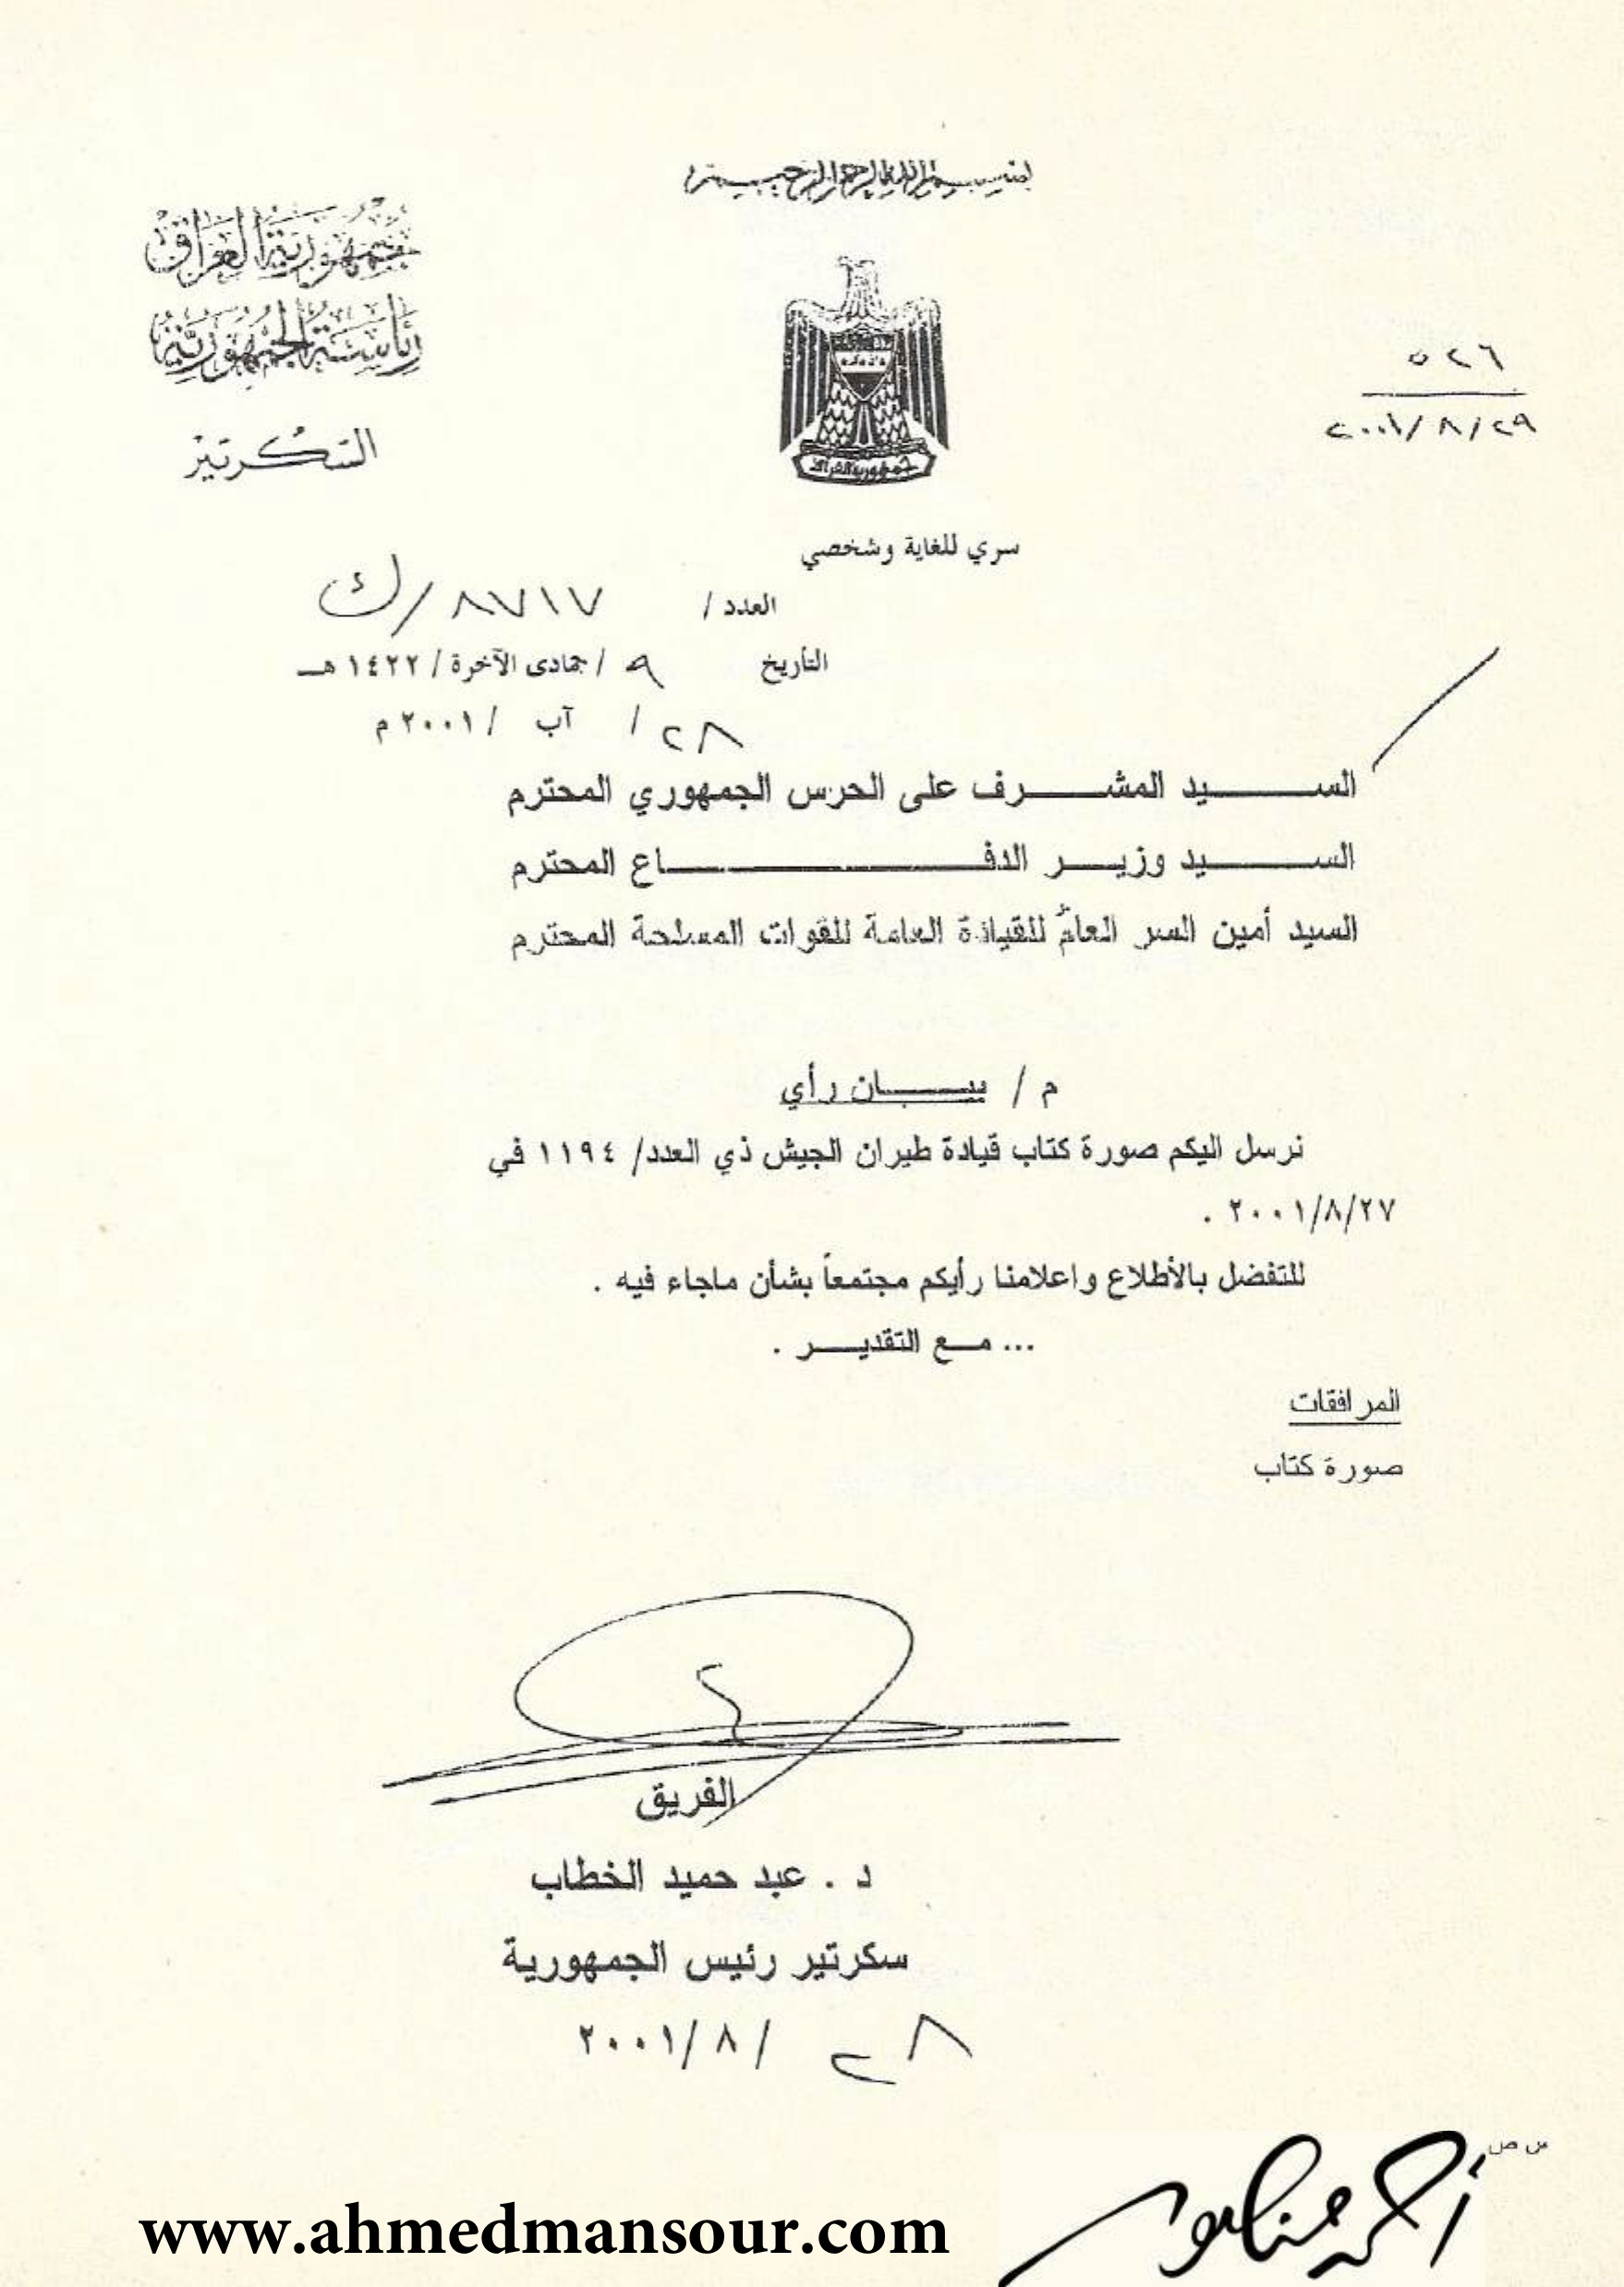 بسم الله الرحمن الرحيم
جمهورية العراق
رئاسة الجمهورية
السكرتير
٥٢٦
٢٠٠١/٨/٢٩
جمهورية العراق
سري للغاية وشخصي
العدد / ٨٧١٧/ك
التأريخ ٩ / جمادى الآخرة / ١٤٢٢ هـ
٢٨ / آب / ٢٠٠١ م
السيد المشرف على الحرس الجمهوري المحترم
السيد وزير الدفاع المحترم
السيد أمين السر العام للقيادة العامة للقوات المسلحة المحترم
م / بيان رأي
نرسل اليكم صورة كتاب قيادة طيران الجيش ذي العدد/ ١١٩٤ في
٢٠٠١/٨/٢٧ .
للتفضل بالأطلاع واعلامنا رأيكم مجتمعاً بشأن ماجاء فيه .
... مع التقدير .
المرافقات
صورة كتاب
الفريق
د . عبد حميد الخطاب
سكرتير رئيس الجمهورية
٢٨ / ٨ /٢٠٠١
س ص
أحمد منصور
www.ahmedmansour.com